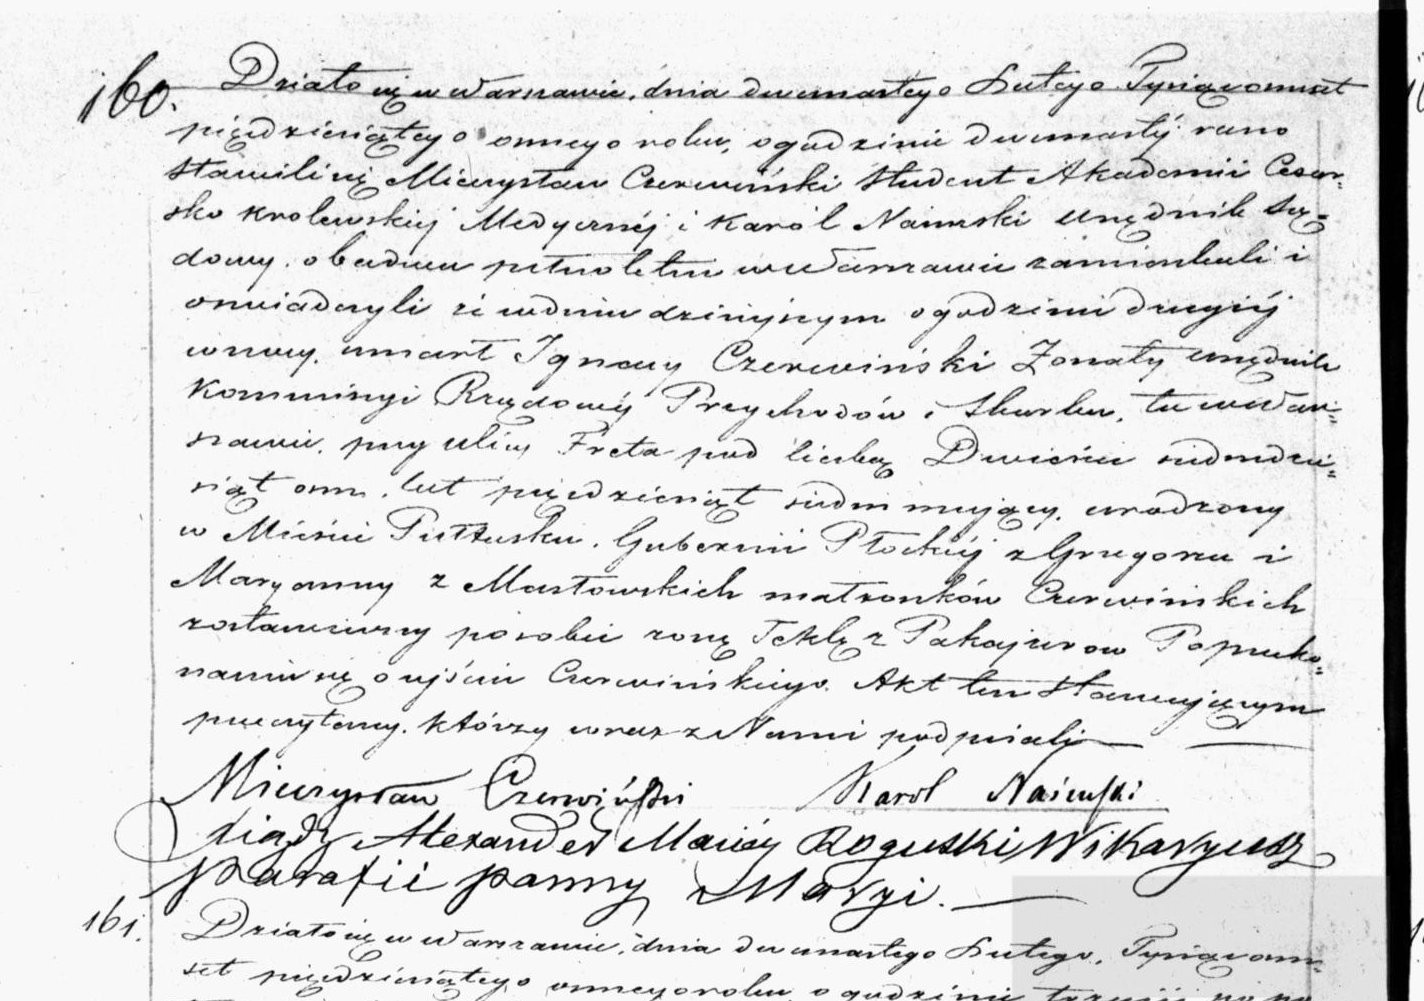 160. Działo się w Warszawie, dnia dwunastego Lutego Tysiąc ośmset
pięćdziesiątego osmego roku, o godzinie dwunastéj rano
Stawili się Mieczysław Czerwiński Student Akademii Cesar-
sko Krolewskiéj Medycznéj i Karól Naimski urzędnik Są-
dowy, obadwa pełnoletni w Warszawie zamieszkali i
oswiadczyli że w dniu dzisiejszym o godzinie drugiéj
w nocy, umarł Ignacy Czerwiński Żonaty urzędnik
Kommissyi Rządowéj Przychodów i Skarbu, tu w War-
szawie, przy ulicy Freta pod liczbą Dwieście siedmdzie-
siąt osm, lat pięćdziesiąt siedm mający, urodzony
w Mieście Pułtusku, Gubernii Płockiéj z Grzegorza i
Maryanny z Masłowskich małżonków Czerwińskich
zostawiwszy po sobie żonę Teklę z Pakajurow Po przeko-
naniu się o zejściu Czerwińskiego, Akt ten Stawającym
przeczytany, którzy wraz z Nami podpisali
Mieczysław Czerwiński Karol Naimski
Xiądz Alexander Maciéj Roguski Wikaryusz
parafii panny Maryi.
161. Działo się w Warszawie, dnia dwunastego Lutego, Tysiąc osm-
set pięćdziesiątego osmego roku o godzinie trzeciéj po po